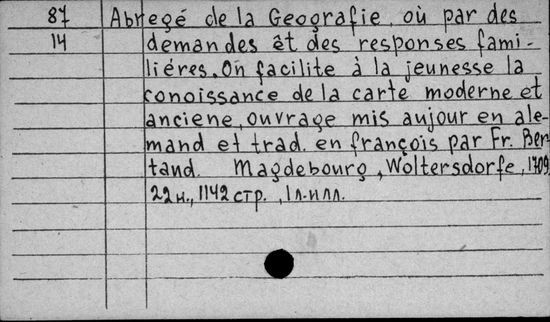 87 Abregé de la Geografie, où par des
14 demandes êt des responses fami-
liéres. On facilite à la jeunesse la
conoissance de la carte moderne et
anciene, ouvrage mis aujour en ale-
mand et trad. en françois par Fr. Ber-
tand. Magdebourg, Woltersdorfe, 1709
22 н., 1142 стр., 1 л. илл.